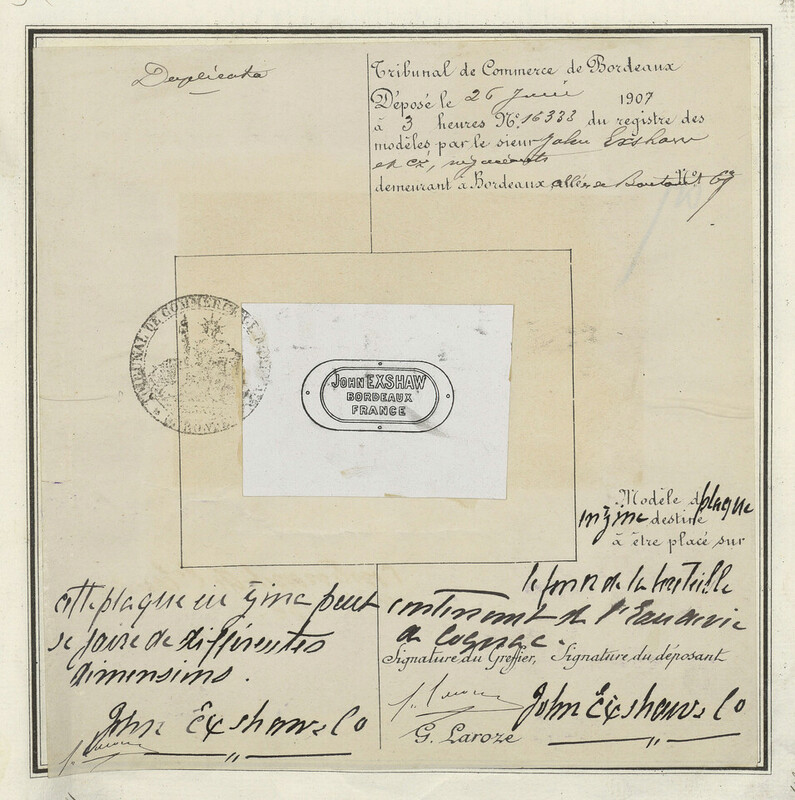 Duplicata
Tribunal de Commerce de Bordeaux
Déposé le 26 Juin 1907
à 3 heures No. 16338 du registre des
modèles par le sieur John Exshaw
et Cie, négociants
demeurant à Bordeaux allées de Boutaut No. 69
TRIBUNAL DE COMMERCE DE BORDEAUX
GIRONDE
JOHN EXSHAW
BORDEAUX
FRANCE
Modèle de plaque
en zinc destiné
à être placé sur
le fond de la bouteille
contenant de l'Eau de vie
de Cognac.
cette plaque en zinc peut
se faire de différentes
dimensions.
Signature du Greffier, Signature du déposant
John Exshaw & Co
G. Laroze
John Exshaw & Co